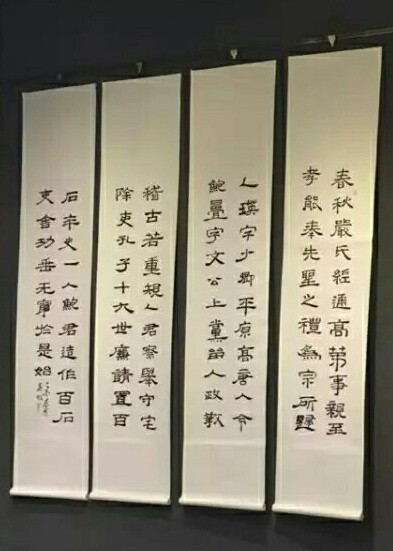 春秋嚴氏經通高苐事親至
孝能奉先聖之禮為宗所歸
乙瑛字少卿平原高唐人令
鮑疊字文公上黨留人政教
稽古若重規乙君察舉守宅
除吏孔子十九世廉請置百
石卒史一人鮑君造作百石
吏舍功垂无窮於是始